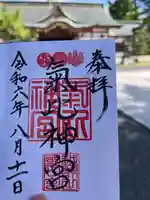 奉拝
氣比神宮
令和六年八月十一日